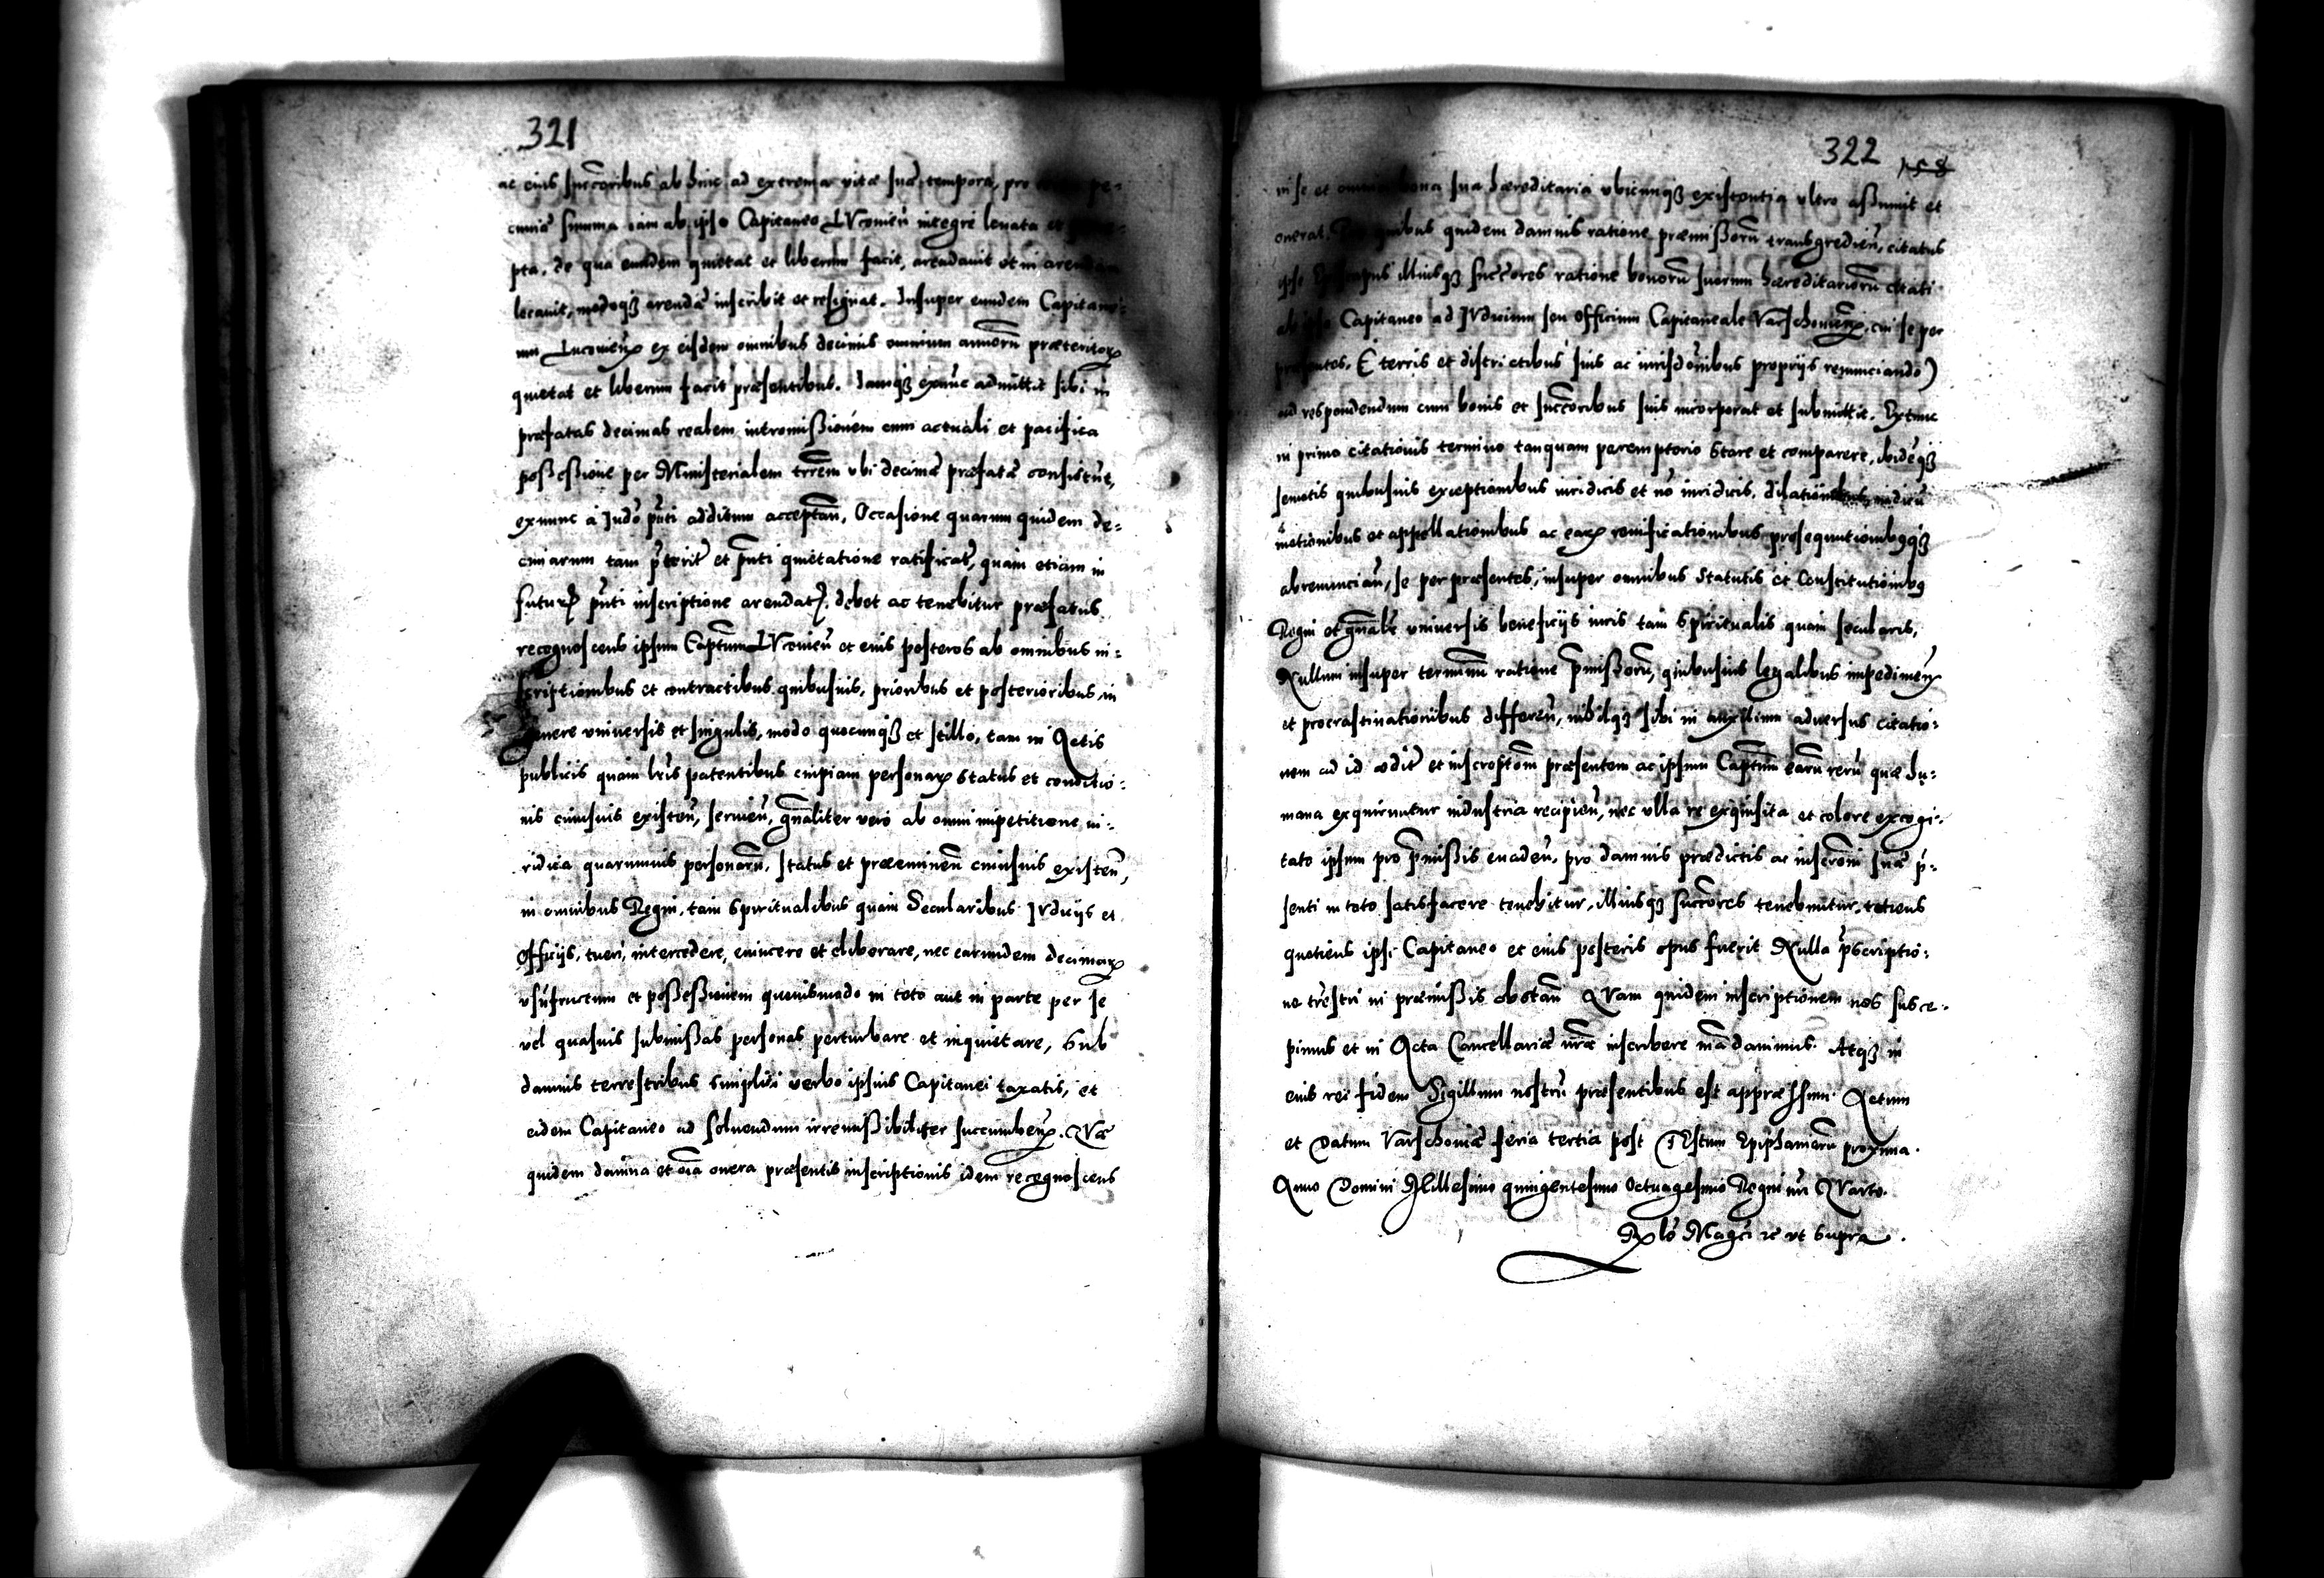 321
ac eius succoribus ab hinc ad extrema vitæ suæ tempora, pro pe=
cuniæ summa iam ab ipso Capitaneo LVcomieñ integre leuata et
pta, de qua eundem quietat et liberum facit, arendauit et in arendam
locauit, modoq₃ arendæ inscribit et resignat. Insuper eundem Capitane=
um Lucomieñ ex eisdem omnibus decimis omnium annorũ præteritorꝝ
quietat et liberum facit præsentibus. Iamq₃ exnũc admittit sibi in
præfatas decimas realem intromißionem cum actuali et pacifica
poßeßione per Ministerialem trrem vbi decimæ præfatæ consistũt,
exnunc a Judõ pñti additum acceptañ, Occasione quarum quidem de=
cimarum tam pterit et pñti quietatione ratificat, quam etiam in
futurꝝ pñti inscriptione arendat. debet ac tenebitur præfatus
recognoscens ipsum Captum LVcomieñ et eius posteros ab omnibus in=
scriptionibus et contractibus quibusuis, prioribus et posterioribus in
genere vniuersis et singulis, modo quocunq₃ et stillo, tam in Actis
publicis quam lris patentibus cuipiam personarꝝ status et conditio=
nis cuiusuis existeñ, seruieñ, gnaliter vero ab omni impetitione iu=
ridica quarumuis personarũ, status et præeminen cuiusuis existeñ,
in omnibus Regni, tam Spiritualibus quam Secularibus IVdicijs et
Officijs, tueri, intercedere, euincere et eliberare, nec earundem decimarꝝ
vsufructum et poßeßionem quouismodo in toto aut in parte per se
vel quasuis submißas personas perturbare et inquietare, Sub
damnis terrestribus simplici verbo ipsius Capitanei taxatis, et
eidem Capitaneo ad soluendum irremißibiliter succumbeñ. QVæ
quidem damna et oia onera præsentis inscriptionis idem recognoscens
322 158
in se et omnia bona sua hæreditaria vbicunq₃ existentia vltro aßumit et
onerat. quibus quidem damnis ratione præmißorũ transgredieñ, citatus
ipse illiusq₃ succores ratione bonorũ suorum hæreditariorũ citati
ab ipso Capitaneo ad IVdicium seu officium Capitaneale Varschouieñ, cui se per
præsentes, (E terris et districtibus suis ac iurisdonibus proprijs renunciando)
ad respondendum cum bonis et succoribus suis incorporat et submittit. Extunc
in primo citationis termino tanquam peremptorio Stare et comparere, ibideq₃
semotis quibusuis exceptionibus iuridicis et nõ iuridicis. dilationibus
motionibus et appellationibus ac earꝝ prosequutionibq₃
abrenunciañ, se per præsentes, insuper omnibus Statutis et Constitutionibꝰ
Regni et gnale vniuersis beneficijs iuris tam Spiritualis quam secularis,
Nullum insuper terminũ ratione pmißorũ, quibusuis legalibus impedimeñ
et procrastinationibus differeñ, nihilq₃ sibi in auxilium aduersus citatio=
nem ad id ædit et inscroptom præsentem ac ipsum Captum earũ rerũ quæ hu=
mana exquiruntur industria recipieñ, nec vlla re exquisita et colore excogi=
tato ipsum pro pmißis euadeñ, pro damnis prædictis ac inscroni suæ p=
senti in toto satisfacere tenebitur, illiusq₃ succores tenebuntur, toties
quotiens ipsi Capitaneo et eius posteris opus fuerit Nulla pscriptio=
ne trestri in præmißis obstañ QVam quidem inscriptionem nos susce=
pimus et in Acta Cancellariæ nræ inscribere mãdauimus. Atq₃ in
eius rei fidem Sigillum nostrũ præsentibus est appræssum. Actum
et Datum Varschouiæ feria tertia post FEstum Epiphaniarũ proxima.
Anno Domini Millesimo quingentesimo Octuagesimo Regni nri QVarto.
Rꝝlo Magci zc vt Supra.